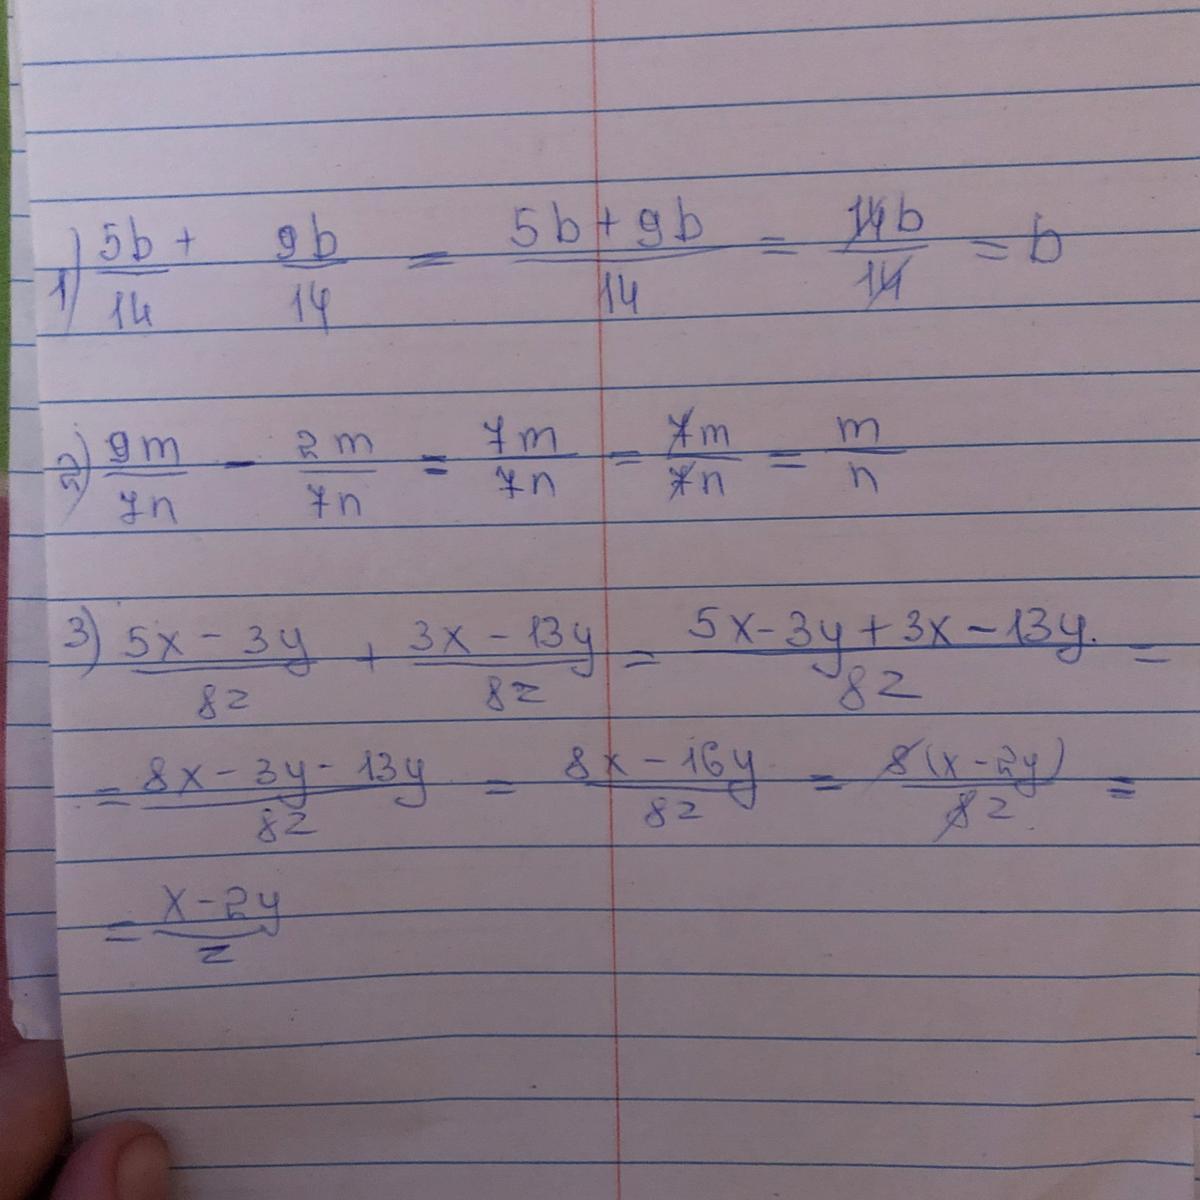 1) 5b/14 + 9b/14 = (5b + 9b)/14 = 14b/14 = b
2) 9m/7n - 2m/7n = 7m/7n = 7m/7n = m/n
3) (5x - 3y)/8z + (3x - 13y)/8z = (5x - 3y + 3x - 13y)/8z =
= (8x - 3y - 13y)/8z = (8x - 16y)/8z = 8(x - 2y)/8z =
= (x - 2y)/z